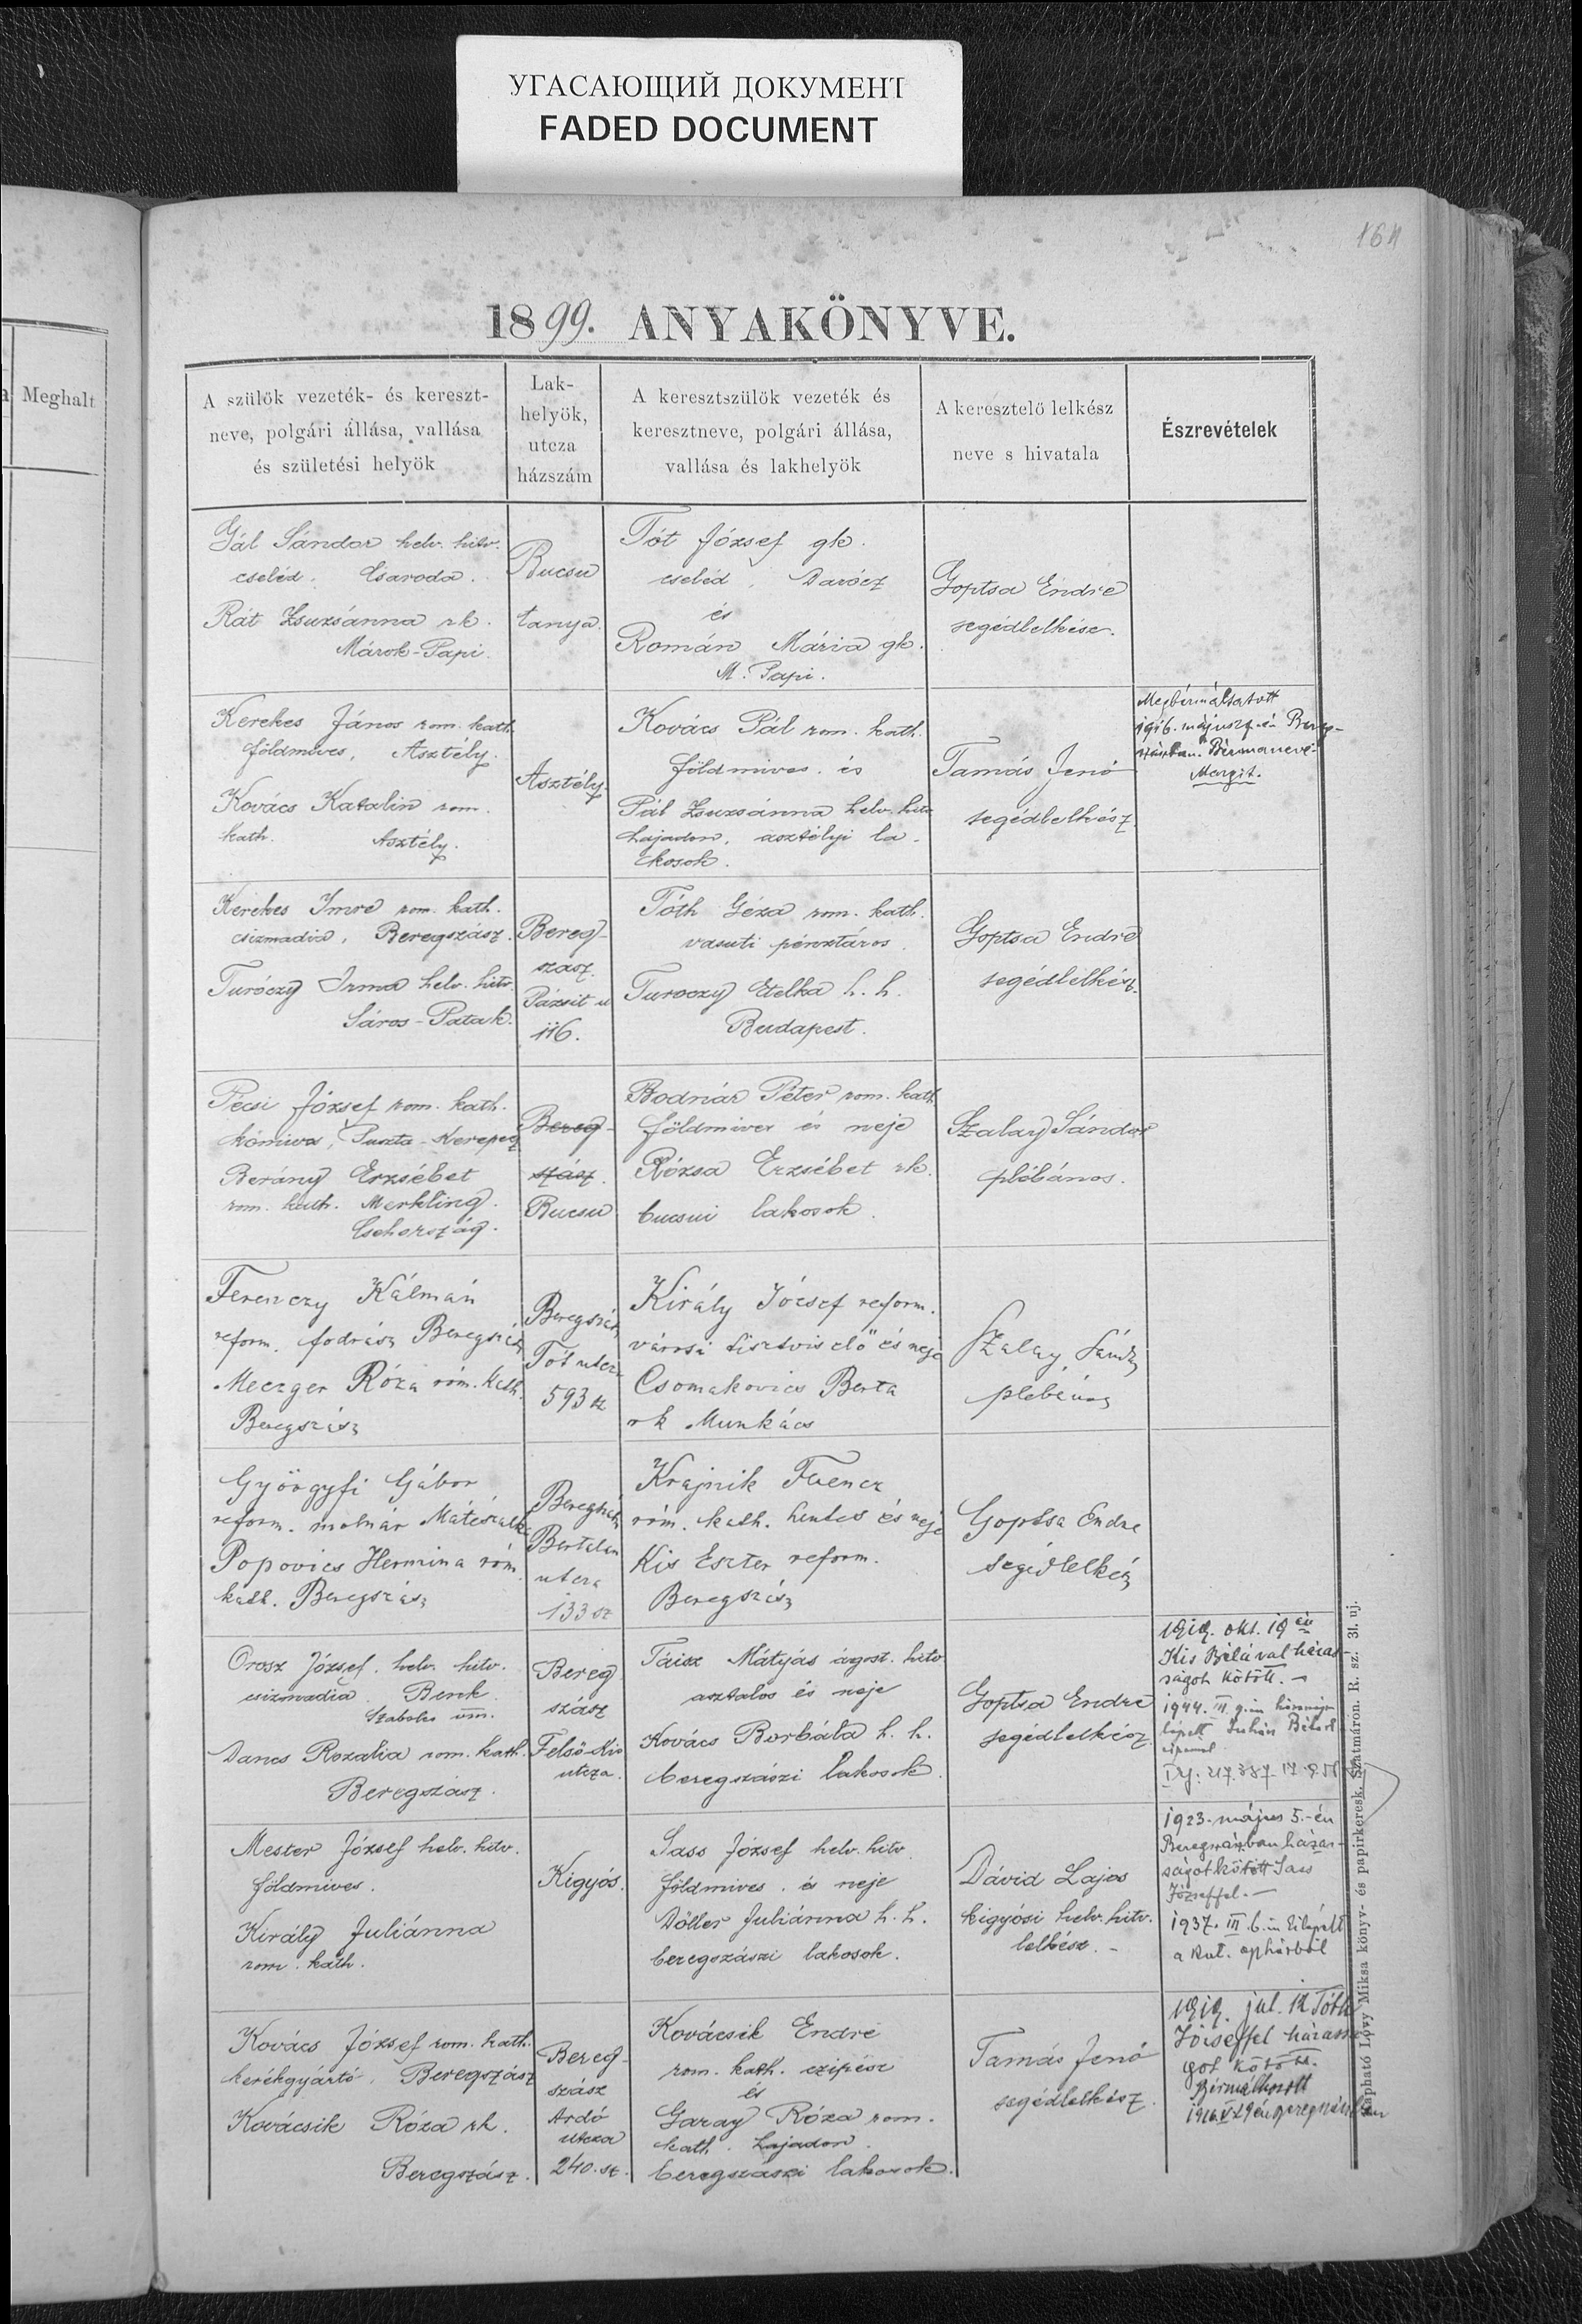 УГАСАЮЩИЙ ДОКУМЕНТ
FADED DOCUMENT
164
1899. ANYAKÖNYVE.
Meghalt
A szülők vezeték- és kereszt-
neve, polgári állása, vallása
és születési helyök
Lak-
helyök,
utcza
házszám
A keresztszülők vezeték és
keresztneve, polgári állása,
vallása és lakhelyök
A keresztelő lelkész
neve s hivatala
Észrevételek
Gál Sándor helv. hitv.
cseléd. Csaroda.
Rát Zsuzsánna rk.
Márok-Papi.
Bucsu
tanya.
Tót József gk.
cseléd, Darócz
és
Román Mária gk.
M. Papi.
Goptsa Endre
segédlelkész.
Kerekes János rom. kath.
földmives, Asztély.
Kovács Katalin rom.
kath. Asztély.
Asztély.
Kovács Pál rom. kath.
földmives. és
Pál Zsuzsánna helv. hitv.
hajadon, asztélyi la-
kosok.
Tamás Jenő
segédlelkész.
Megbérmáltatott
1916. május
Bérmaneve:
Margit.
Kerekes Imre rom. kath.
csizmadia, Beregszász.
Turóczy Irma helv. hitv.
Sáros-Patak.
Bereg-
szász.
Pázsit u
116.
Tóth Géza rom. kath.
vasuti pénztáros.
Turoczy Etelka h. h.
Budapest.
Goptsa Endre
segédlelkész.
Pécsi József rom. kath.
kőmives, Puszta-Kerepecz
Berány Erzsébet
rom. kath. Merkling.
Csehország.
Bereg-
szász.
Bucsu
Bodnár Péter rom. kath.
földmives és neje
Rózsa Erzsébet rk.
bucsui lakosok.
Szalay Sándor
plébános.
Ferenczy Kálmán
reform. fodrász Beregszász
Meczger Róza róm. kath.
Beregszász
Beregszász
Tót utcza
593 sz
Király József reform.
városi tisztviselő és neje
Csomakovics Berta
rk Munkács
Szalay Sándor
plebános
Györgyfi Gábor
reform. molnár Mátészalka
Popovics Hermina róm.
kath. Beregszász
Beregszász
Bertalan
utcza
133 sz
Krajnik Ferencz
róm. kath. hentes és neje
Kis Eszter reform.
Beregszász
Goptsa Endre
segédlelkész
Orosz József. helv. hitv.
csizmadia. Benk.
Szabolcs vm.
Dancs Rozalia rom. kath.
Beregszász.
Bereg
szász
Felső-Kis
utcza.
Táisz Mátyás ágost. hitv.
asztalos és neje
Kovács Borbála h. h.
beregszászi lakosok.
Goptsa Endre
segédlelkész.
1919. okt. 19 én
Kis Bélával házas
ságot kötött. –
1944. III. 9.
lépett Juhász Béla
Mester József helv. hitv.
földmives.
Király Juliánna
rom. kath.
Kigyós.
Sass József helv. hitv.
földmives. és neje
Döller Juliánna h. h.
beregszászi lakosok.
Dávid Lajos
kigyósi helv. hitv.
lelkész. –
1923. május 5.-én
Beregszászban házas-
ságot kötött Sass
Józseffel. –
1937. III. 6.-án kilépett
a kat. egyházból
Kovács József rom. kath.
kerékgyártó, Beregszász
Kovácsik Róza rk.
Beregszász.
Bereg-
szász
Ardó
utcza
240. sz.
Kovácsik Endre
rom. kath. czipész
és
Garay Róza rom.
kath. hajadon.
beregszászi lakosok.
Tamás Jenő
segédlelkész.
1919. jul. 12 Tóth
Józseffel házassá
got kötött.
Bérmálkozott
1916. V. 29 én Beregszászban
Kapható Lővy Miksa könyv- és papirkeresk. Szatmáron. R. sz. 31. uj.